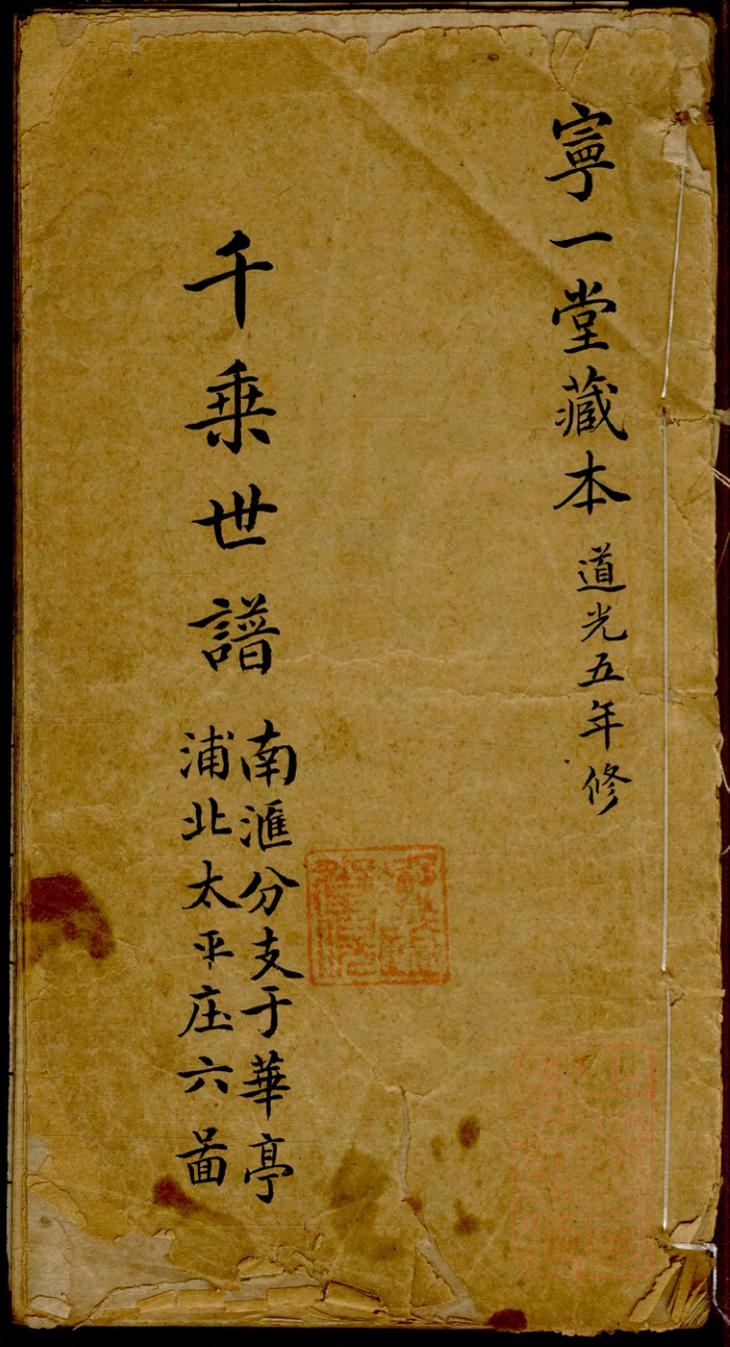 寧一堂藏本 道光五年修
千乗世譜
南滙分支于華亭
浦北太平庄六啚